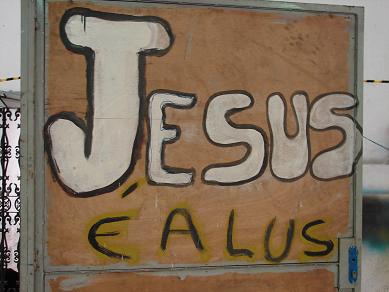 JESUS
É A LUS